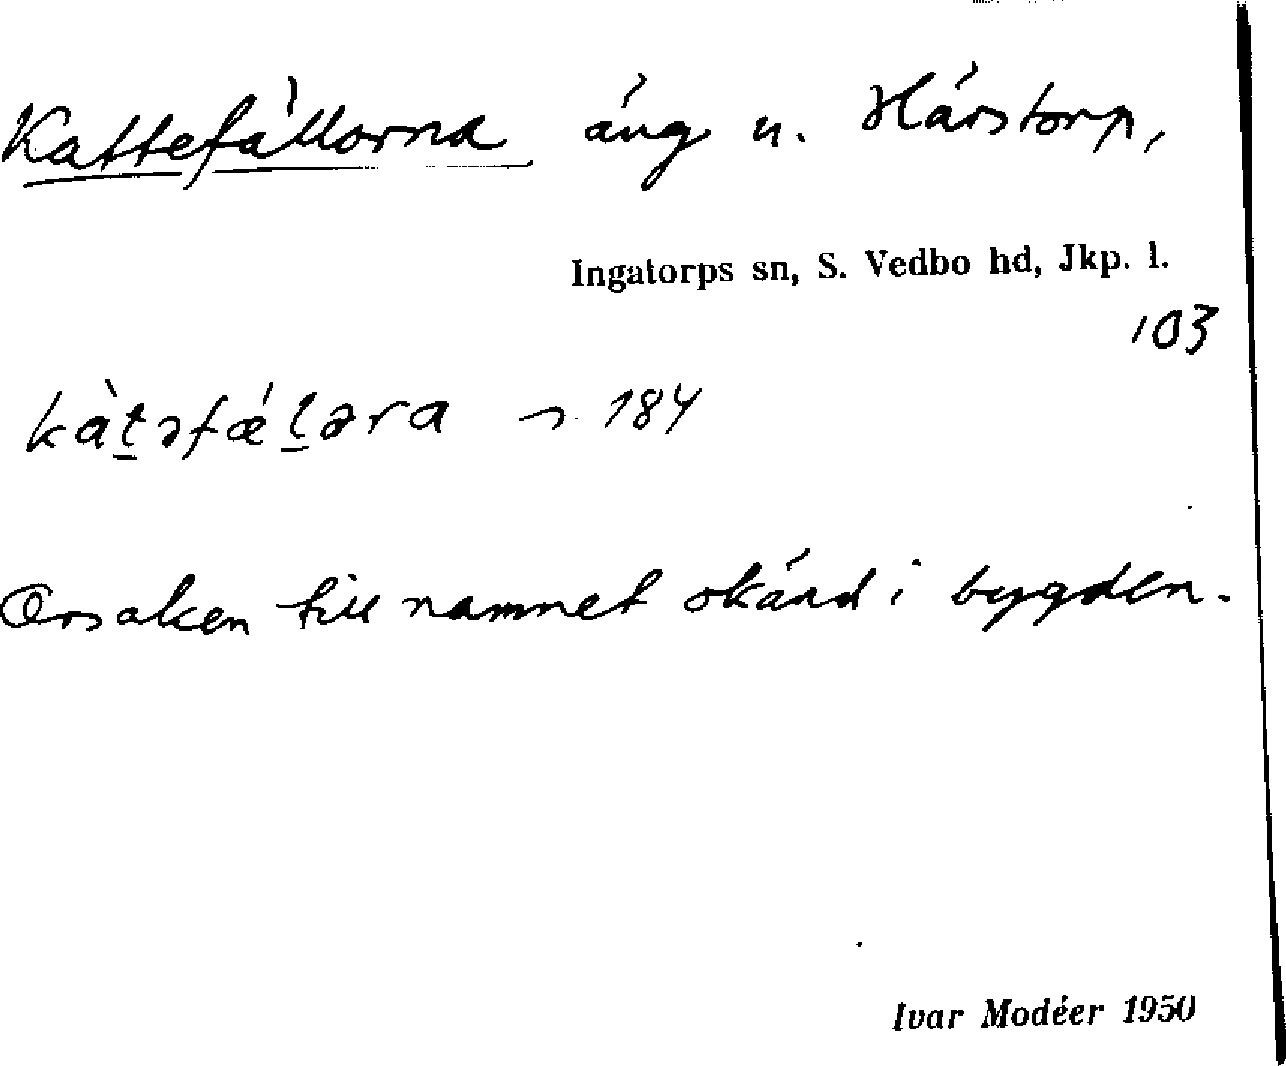 Kattefällorna äng u. Härstorp,
Ingatorps sn, S. Vedbo hd, Jkp. l.
103
kàt̠əfǽl̠əra ¬ 184
Orsaken till namnet okänd i bygden.
Ivar Modéer 1950